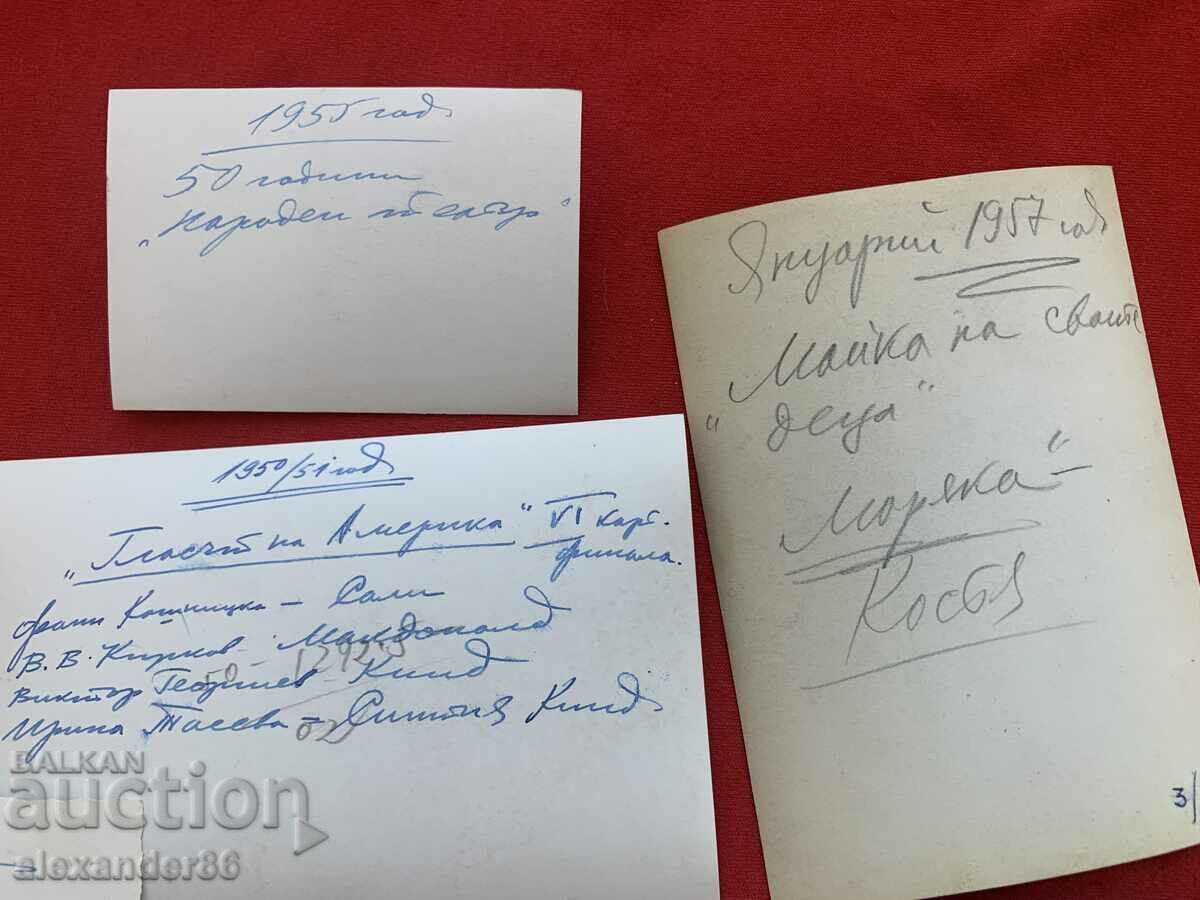 1955 год
50 години
"Народен театър"
Януарий 1957 год
"Майка на своите
деца"
Моряка" -
Костя
1950/51 год
"Гласът на Америка" VI карт.
финала.
Кошницка - Сали
В. В. Кирков - Макдоналд
Виктор Георгиев - Кинд
Ирина Тасева - Синтия Кинд
3/
BALKAN
auction
alexander86